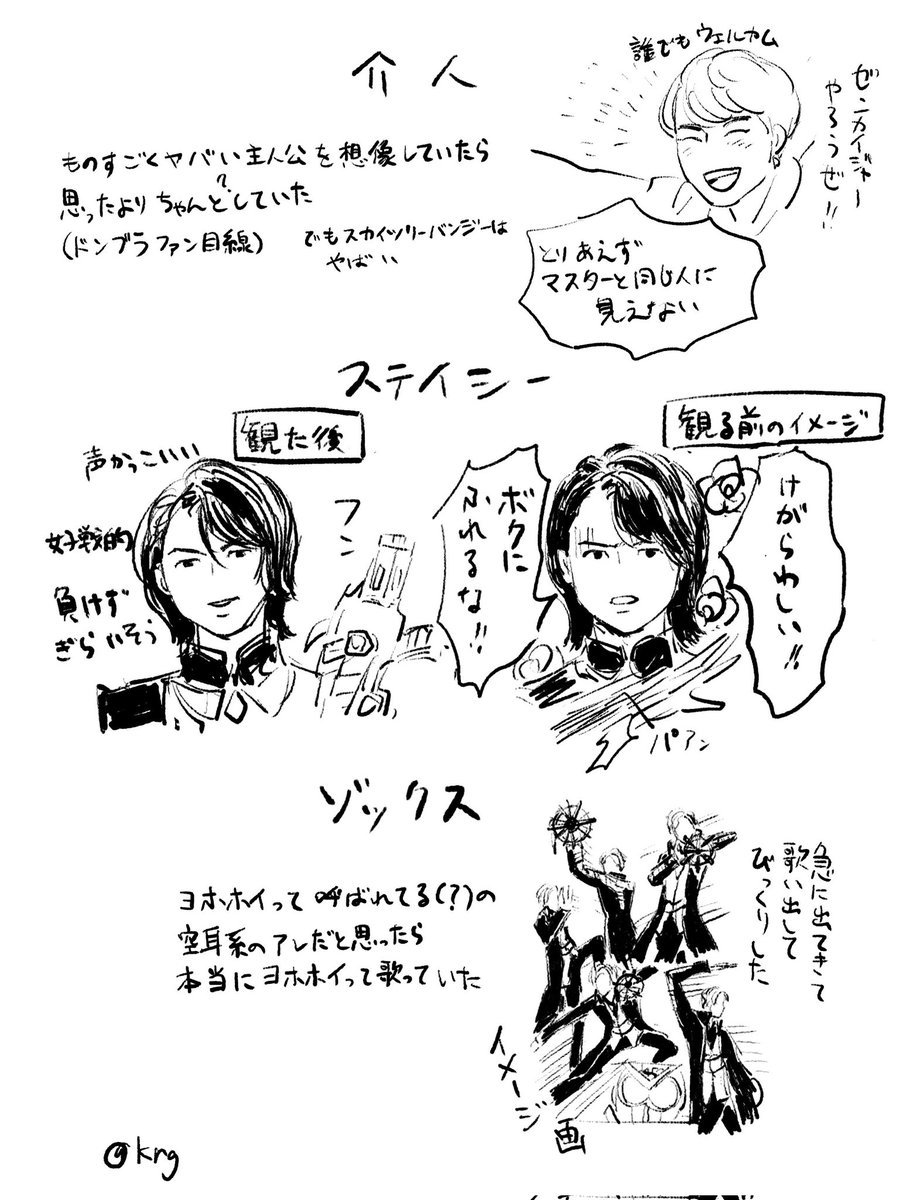 介人
誰でもウェルカム
ゼンカイジャー
やろうぜ!!
ものすごくヤバい主人公を想像していたら
思ったよりちゃんと?していた
(ドンブラファン目線)
でもスカイツリーバンジーは
やばい
とりあえず
マスターと同じ人に
見えない
ステイシー
観る前のイメージ
けがらわしい!!
ボクに
ふれるな!!
パアン
観た後
声かっこいいい
好戦的
負けず
ぎらいそう
フン
ゾックス
ヨホホイって呼ばれてる(?)の
空耳系のアレだと思ったら
本当にヨホホイって歌っていた
急に出てきて
歌い出して
びっくりした
イメージ画
@krg